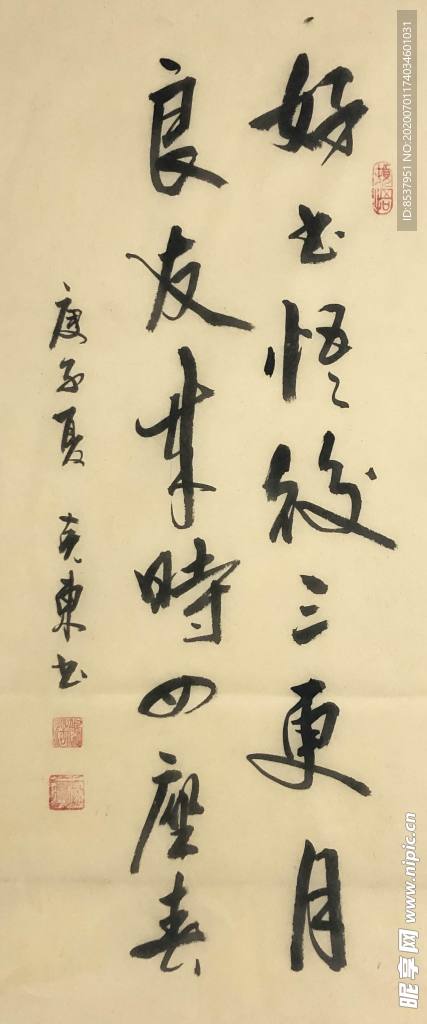 好书悟後三更月
良友來時四座春
庚子夏 克東书
昵享网 www.nipic.cn
ID:8537951 NO:20200701174034601031